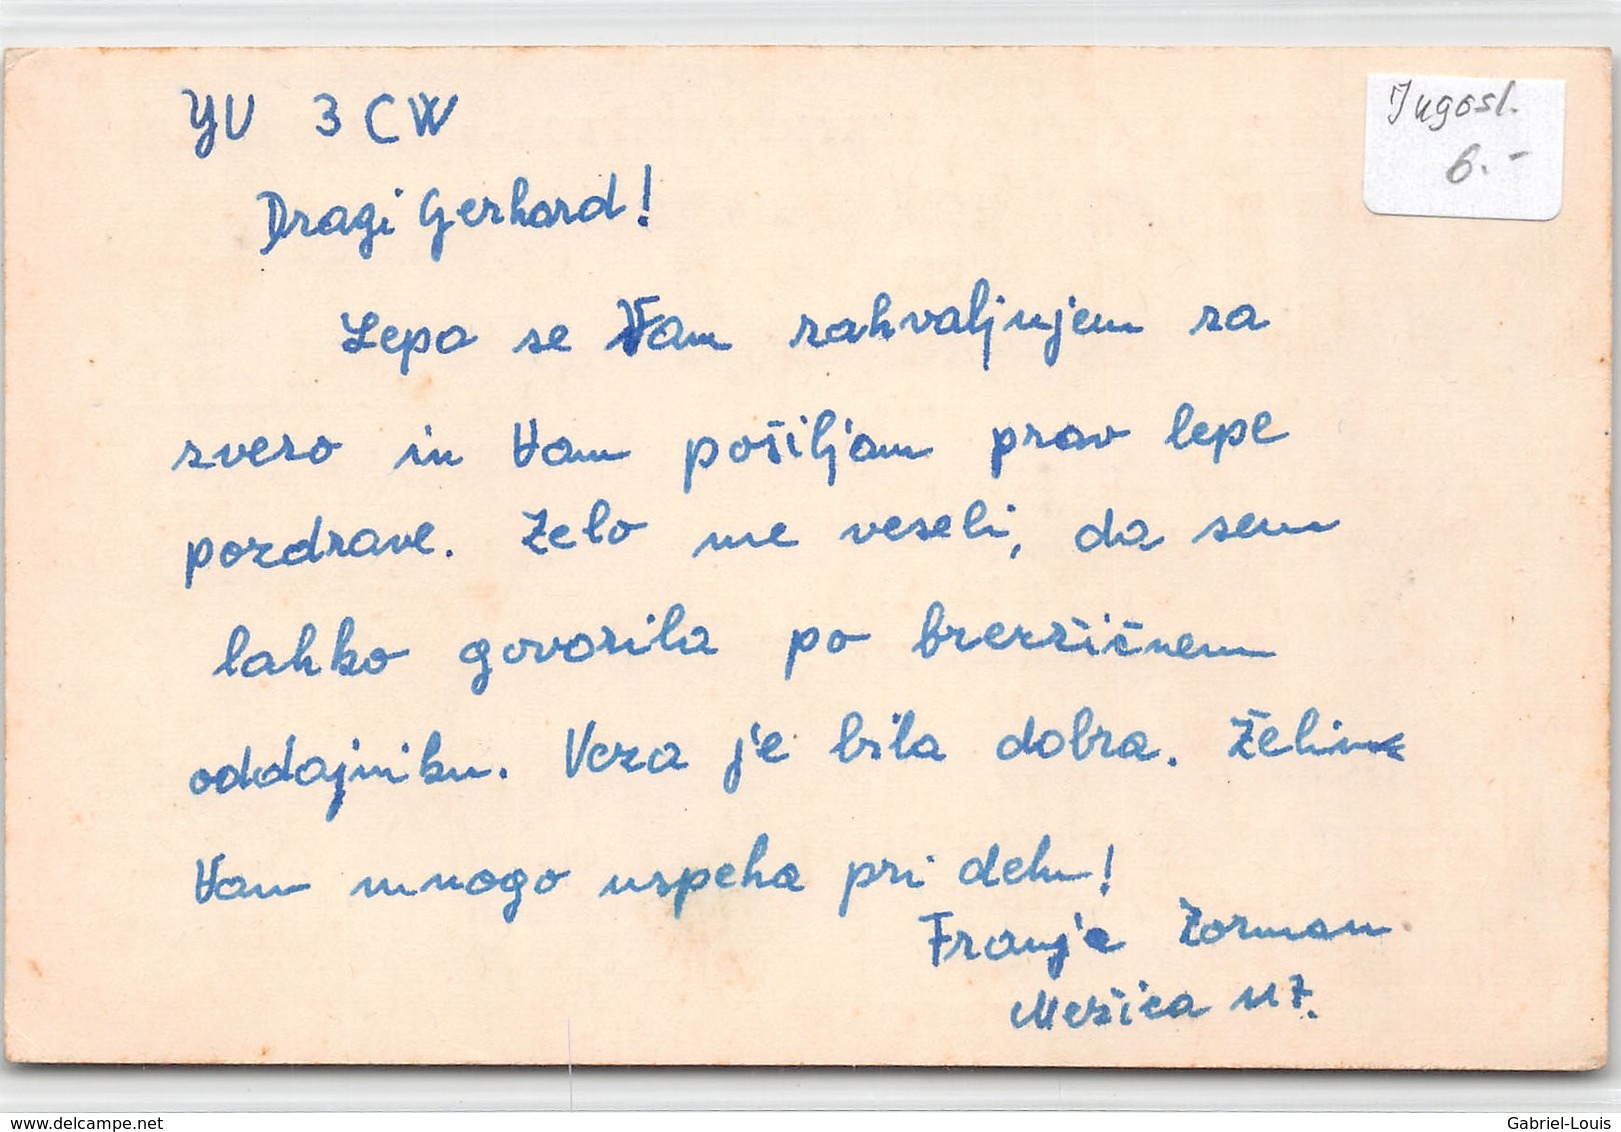 YU 3CW
Jugosl.
6.-
Dragi Gerhard!
Lepo se Vam zahvaljujem za
zvezo in Vam pošiljam prav lepe
pozdrave. Zelo me veseli, da sem
lahko govorila po brezžičnem
oddajniku. Veza je bila dobra. Želim
Vam mnogo uspeha pri delu!
Franja Zorman
Mežica
delcampe.net
Gabriel-Louis